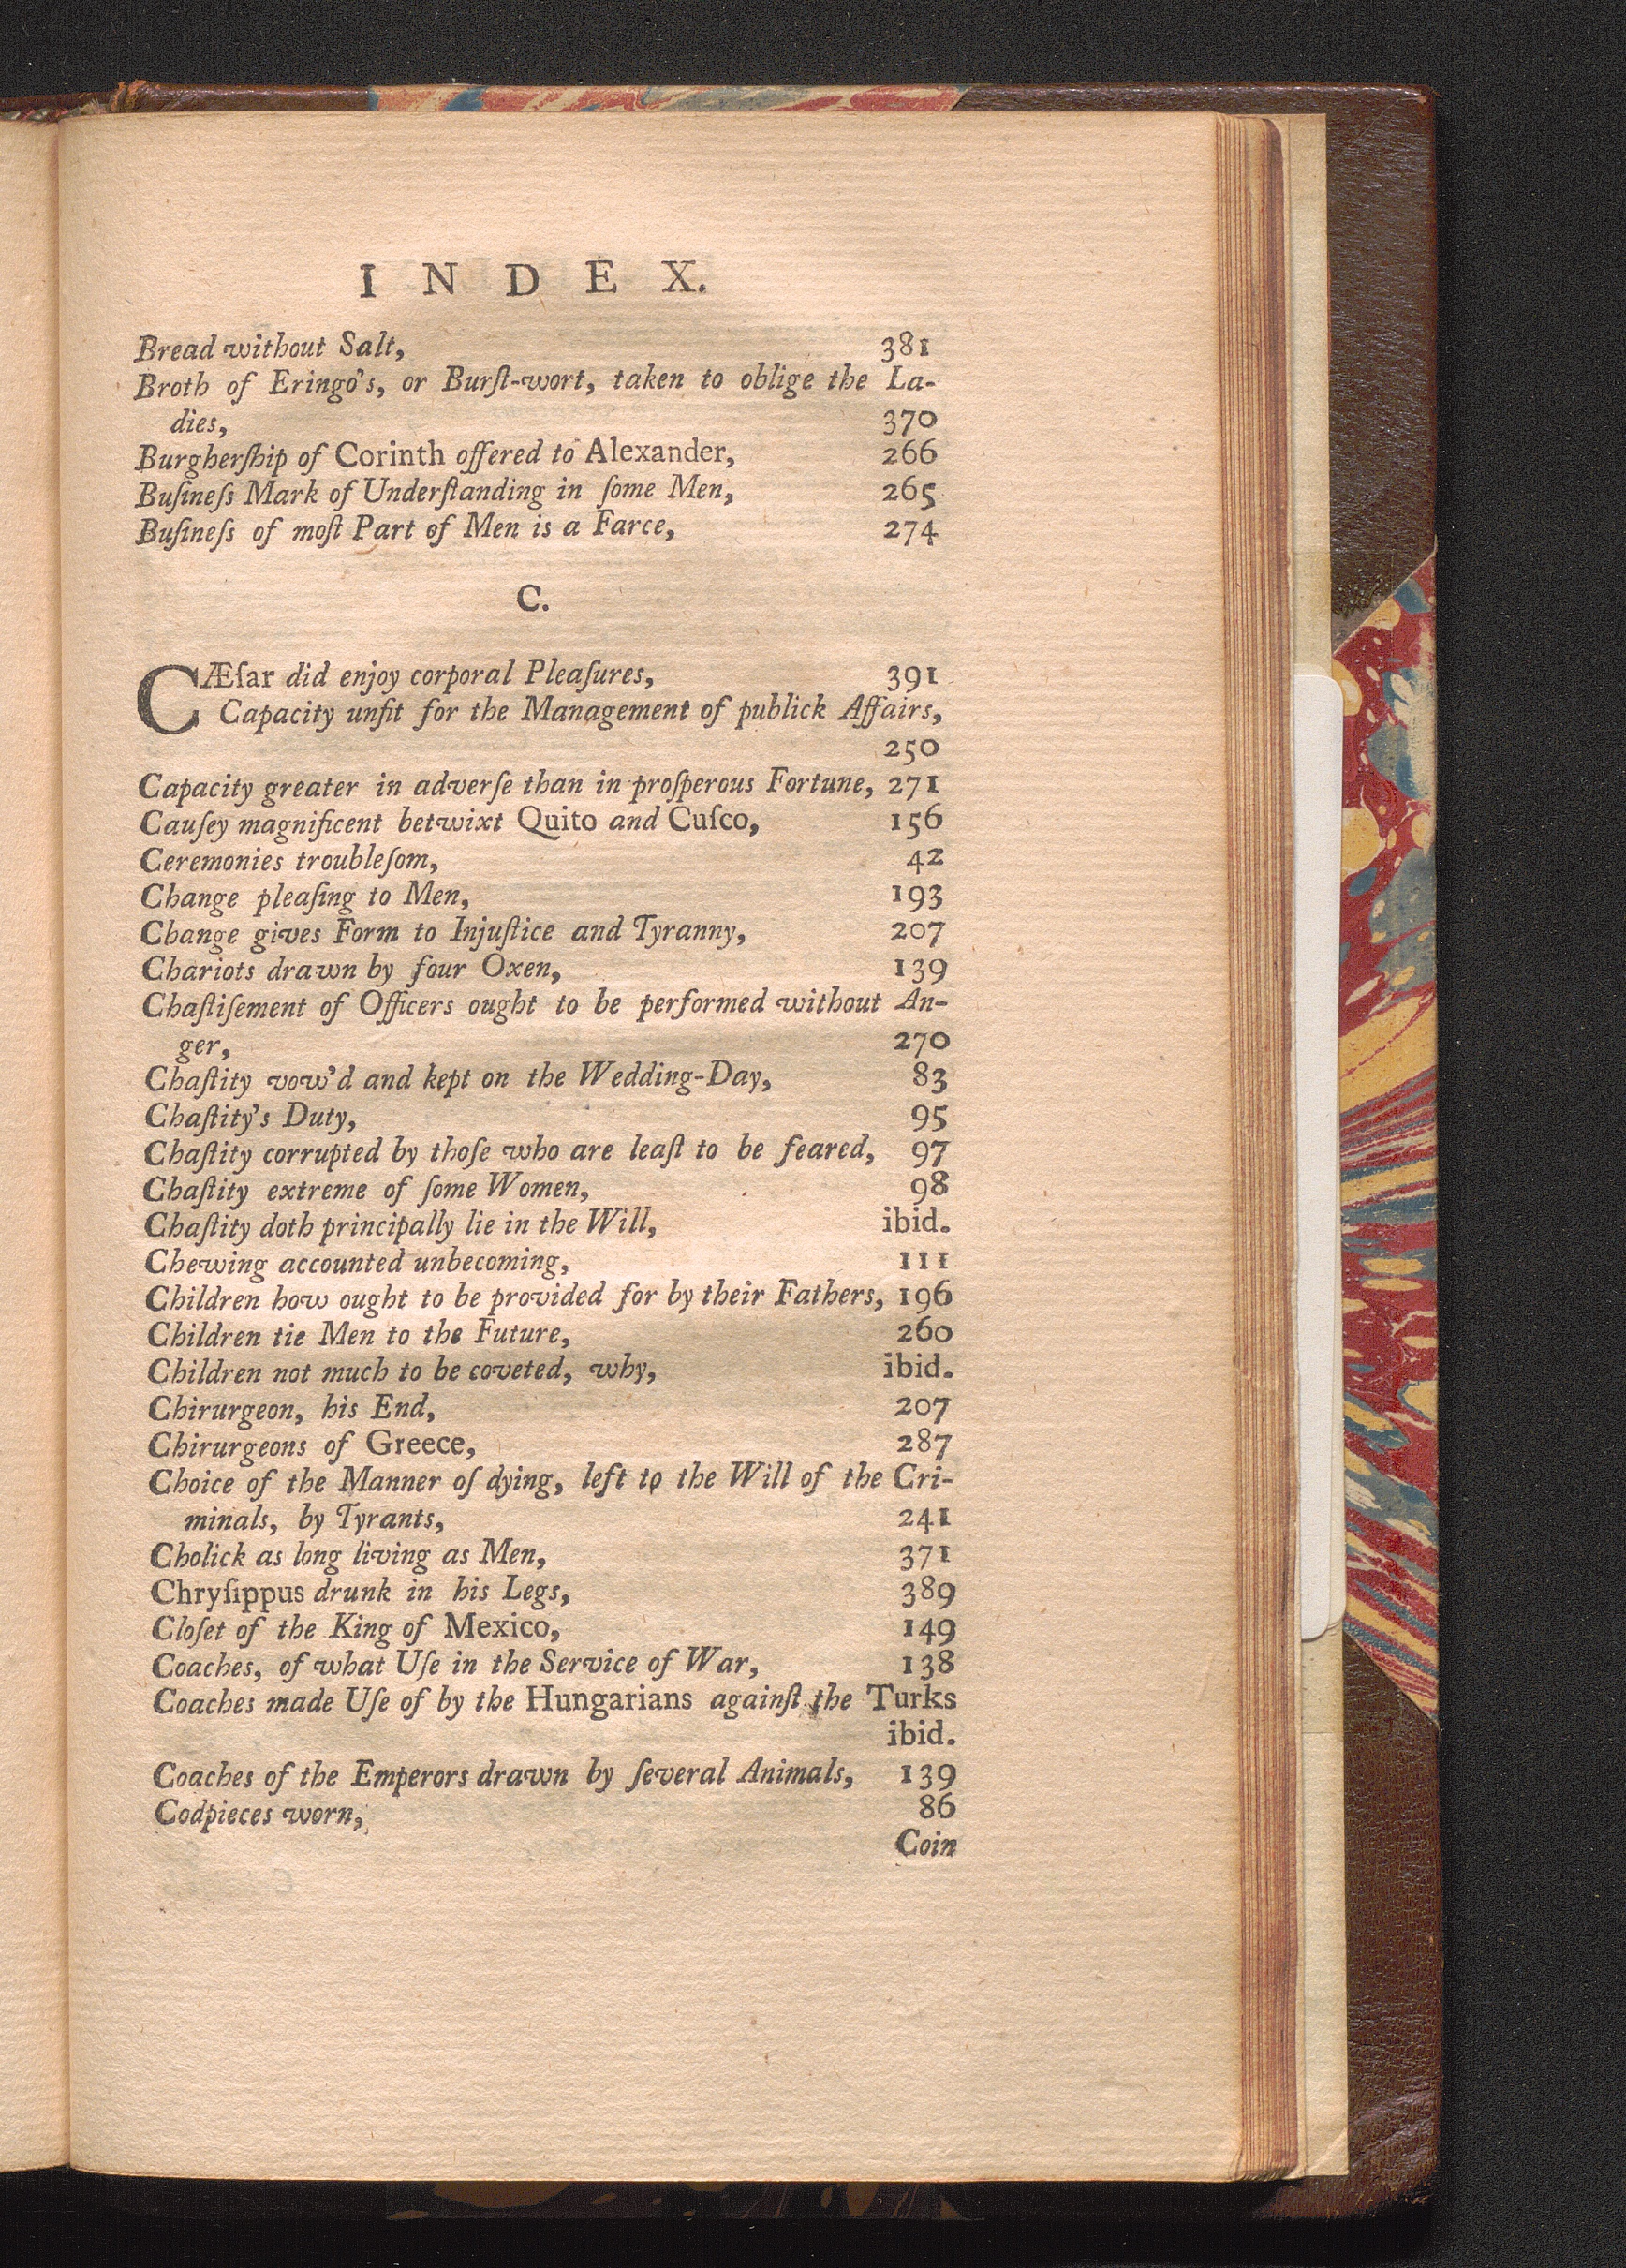 INDEX.
Bread without Salt, 381
Broth of Eringo's, or Burſt-wort, taken to oblige the La-
dies, 370
Burgherſhip of Corinth offered to Alexander, 266
Buſineſs Mark of Underſtanding in ſome Men, 265
Buſineſs of moſt Part of Men is a Farce, 274
C.
CÆſar did enjoy corporal Pleaſures, 391
Capacity unfit for the Management of publick Affairs,
250
Capacity greater in adverſe than in proſperous Fortune, 271
Cauſey magnificent betwixt Quito and Cuſco, 156
Ceremonies troubleſom, 42
Change pleaſing to Men, 193
Change gives Form to Injuſtice and Tyranny, 207
Chariots drawn by four Oxen, 139
Chaſtiſement of Officers ought to be performed without An-
ger, 270
Chaſtity vow'd and kept on the Wedding-Day, 83
Chaſtity's Duty, 95
Chaſtity corrupted by thoſe who are leaſt to be feared, 97
Chaſtity extreme of ſome Women, 98
Chaſtity doth principally lie in the Will, ibid.
Chewing accounted unbecoming, 111
Children how ought to be provided for by their Fathers, 196
Children tie Men to the Future, 260
Children not much to be coveted, why, ibid.
Chirurgeon, his End, 207
Chirurgeons of Greece, 287
Choice of the Manner of dying, left to the Will of the Cri-
minals, by Tyrants, 241
Cholick as long living as Men, 371
Chryſippus drunk in his Legs, 389
Cloſet of the King of Mexico, 149
Coaches, of what Uſe in the Service of War, 138
Coaches made Uſe of by the Hungarians againſt the Turks
ibid.
Coaches of the Emperors drawn by ſeveral Animals, 139
Codpieces worn, 86
Coin